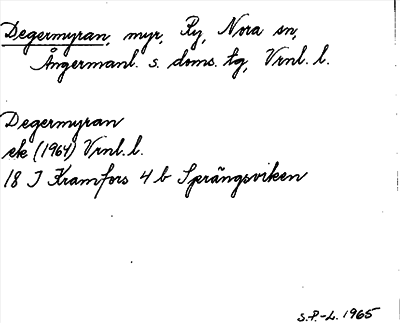 Degermyran, myr, Py, Nora sn,
Ångermanl. s. doms. tg, Vrnl. l.
Degermyran
ek (1964) Vrnl. l.
18 J Kramfors 4 b Sprängsviken
S.P.-L. 1965